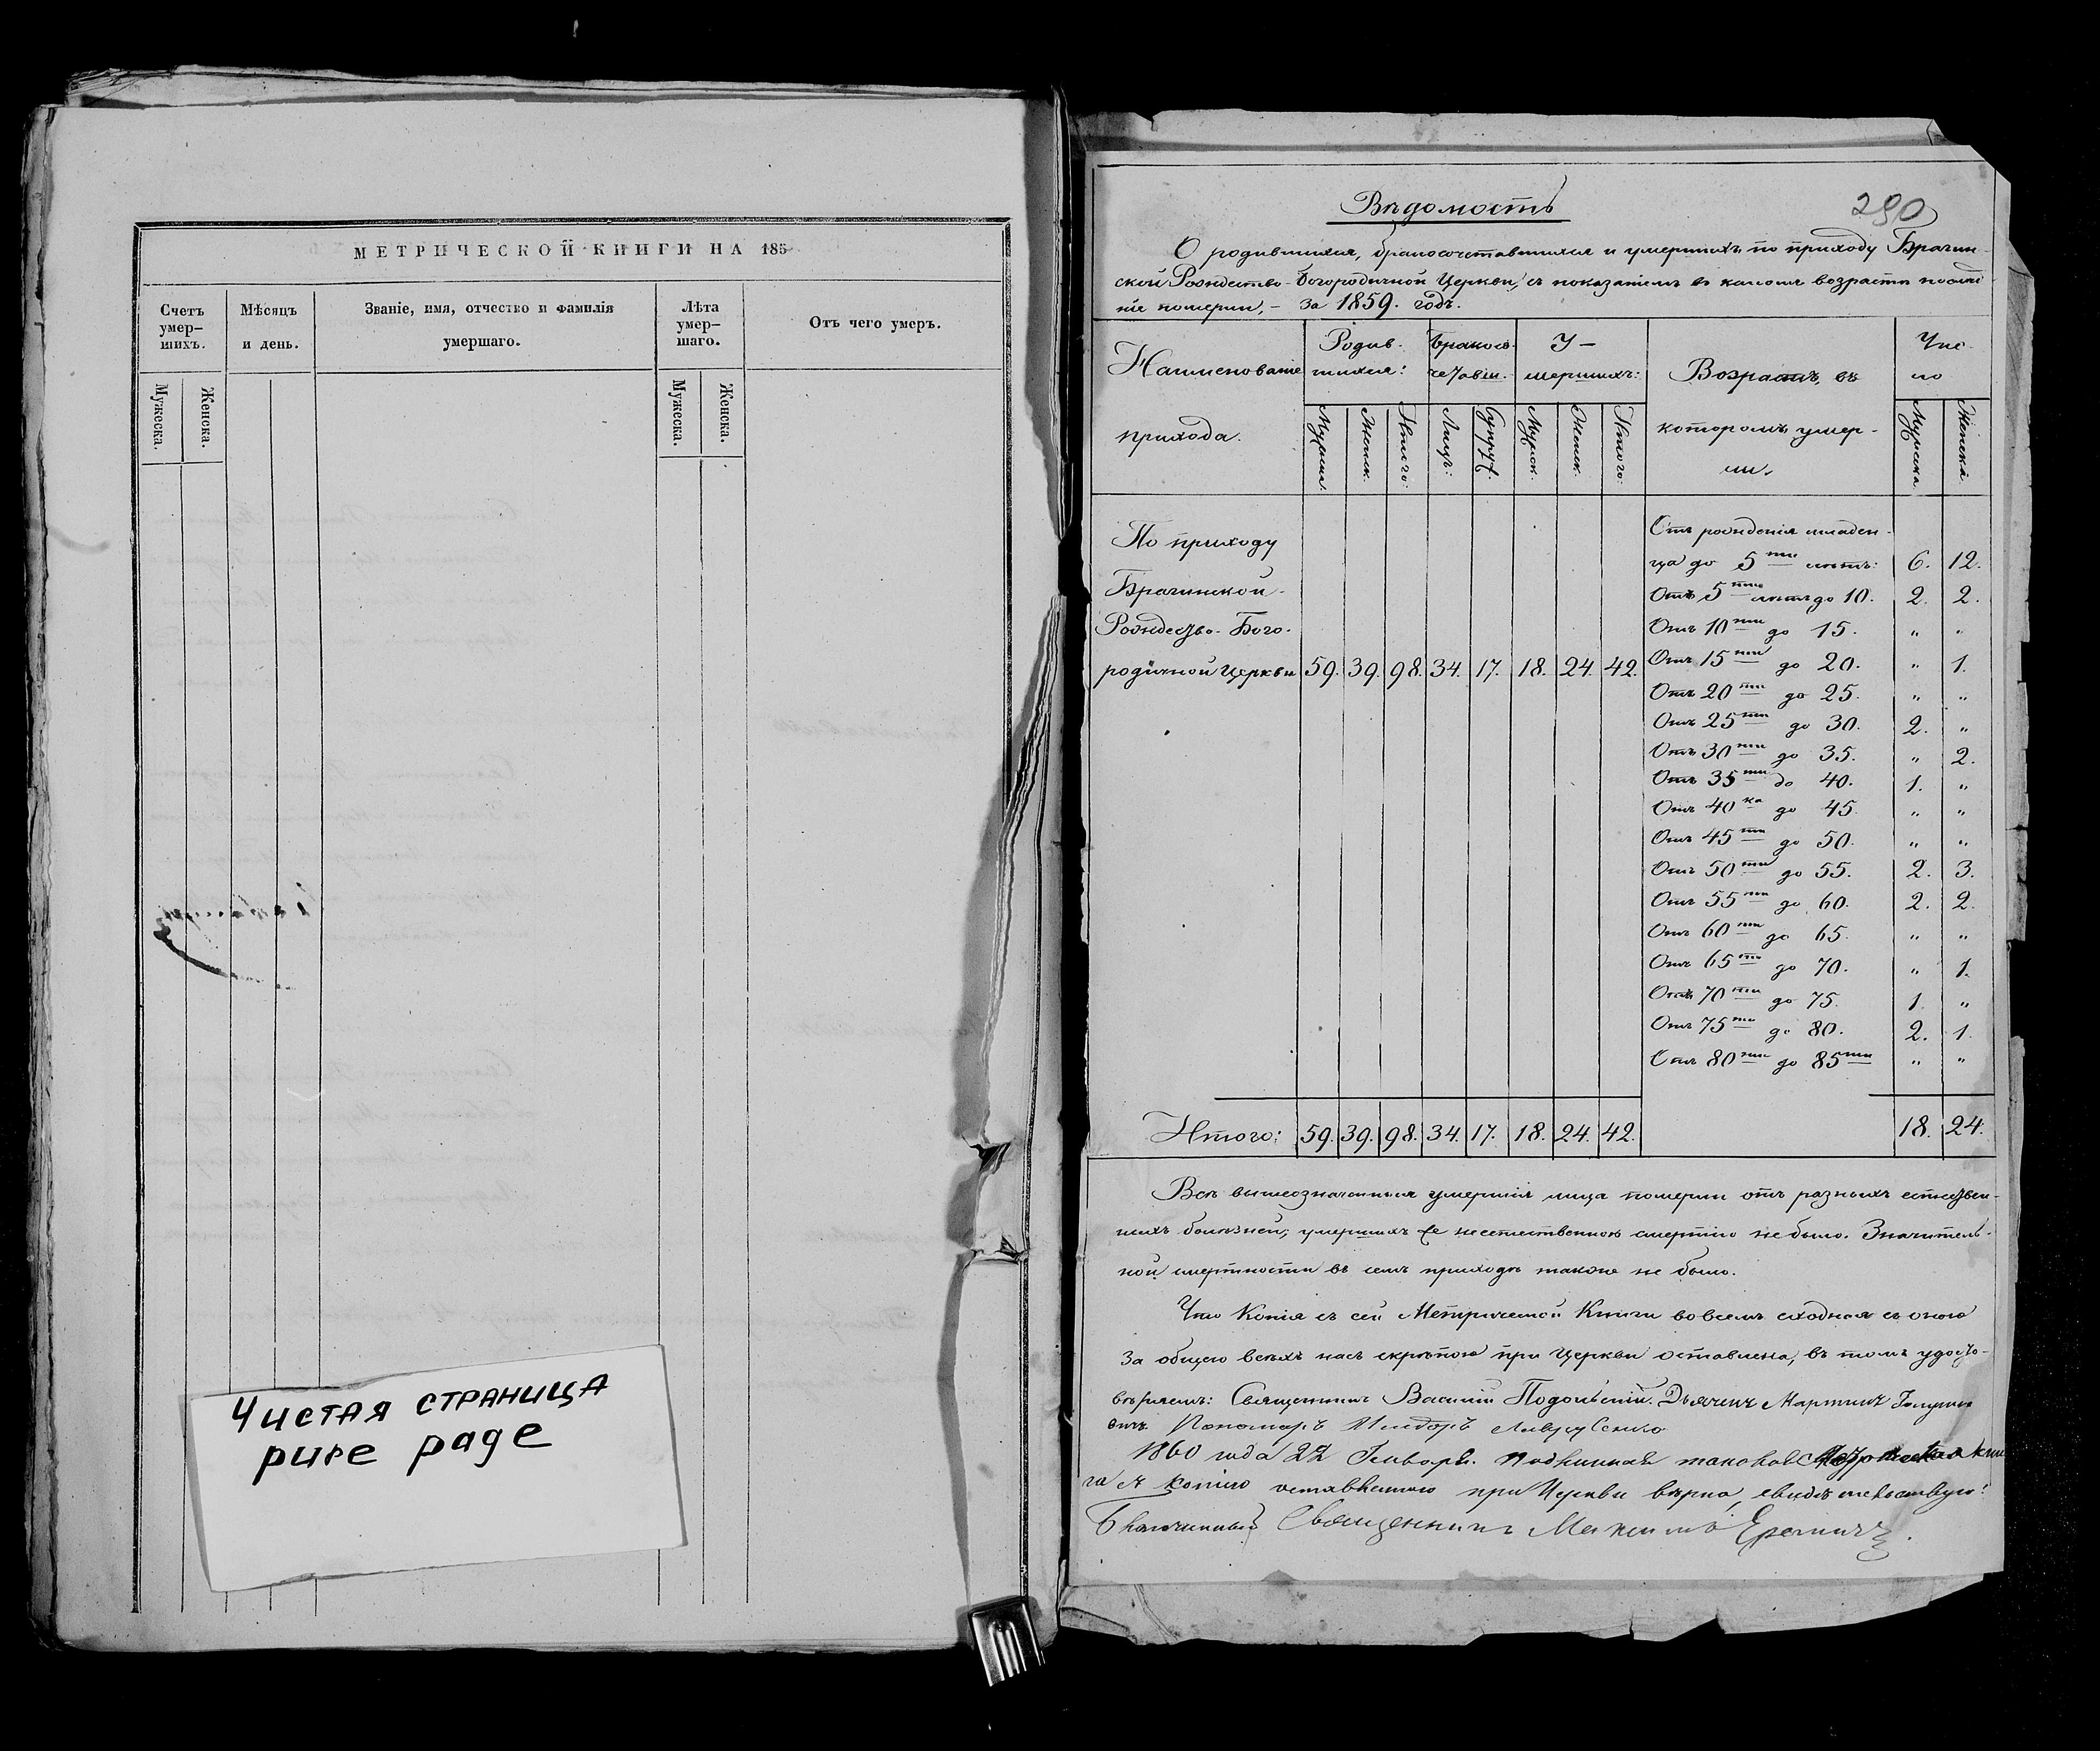 МЕТРИЧЕСКОЙ КНИГИ НА 185
Счетъ умер–шихъ.
Мѣсяцъ и день.
Званіе, имя, отчество и фамилія умершаго.
Лѣта умер–шаго.
Отъ чего умеръ.
Мужеска.
Женска.
Мужеска.
Женска.
Чистая страница
pure page
Вѣдомость
290
О родившихся, бракосочетавшихся и умершихъ по приходу Брагин-
ской Рождество-Богородичной Церкви, съ показаніемъ въ какомъ возрастѣ послѣд
ніе померли, – за 1859. годъ.
Наименованіе прихода.
Родив-шихся:
Бракосо-четавш.
У–мершихъ:
Возрастъ, въ которомъ умер-ли.
Чис-ло
Мужеск. Женск. Итого: Лицъ: Супруж. Мужск. Женск. Итого: Мужеска Женска
По приходу
Брагинской
Рождество-Бого-
родичной Церкви 59. 39. 98. 34. 17. 18. 24. 42.
Отъ рожденія младен-
ца до 5ти лѣтъ: 6. 12.
Отъ 5ти лѣтъ до 10. 2. 2.
Отъ 10ти до 15. " "
Отъ 15ти до 20. " 1.
Отъ 20ти до 25. " "
Отъ 25ти до 30. 2. "
Отъ 30ти до 35. " 2.
Отъ 35ти до 40. 1. "
Отъ 40ка до 45. " "
Отъ 45ти до 50. " "
Отъ 50ти до 55. 2. 3.
Отъ 55ти до 60. 2. 2.
Отъ 60ти до 65. " "
Отъ 65ти до 70. " 1.
Отъ 70ти до 75. 1. "
Отъ 75ти до 80. 2. 1.
Отъ 80ти до 85ти " "
Итого: 59. 39. 98. 34. 17. 18. 24. 42. 18. 24.
Всѣ вышеозначенныя умершія лица померли отъ разныхъ естествен-
ныхъ болѣзней; умершихъ не естественною смертію не было. Значитель-
ной смертности въ семъ приходѣ также не было.
Что Копія съ сей Метрической Книги во всемъ сходная съ оною
За общею всѣхъ насъ скрѣпою при Церкви оставлена, въ томъ удосто-
вѣряемъ: Священникъ Василій Подольскій. Дьячекъ Мартинъ
Пономаръ
1860 года 22 Генваря. Подлинная таковая Метрическая кни
га съ копіею оставленною при Церкви вѣрна, свидѣтельствую:
Благочинный Священникъ Максимъ